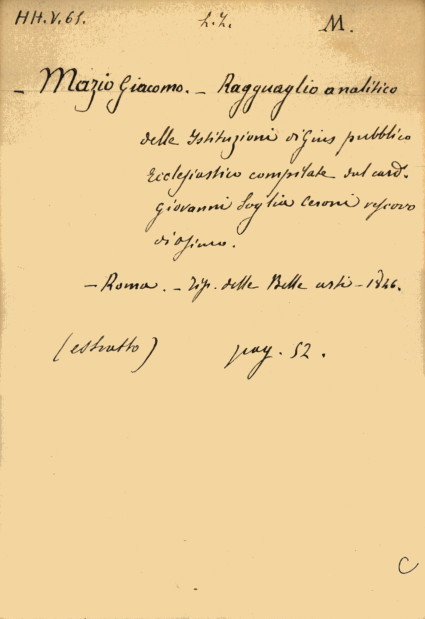 HH.V.65. L.L. M.
- Mazio Giacomo. - Ragguaglio analitico
delle Istituzioni di Gius pubblico
Ecclesiastico compilate dal card.
Giovanni Soglia Ceroni vescovo
di Osimo.
- Roma. - Tip. delle Belle arti - 1846.
(estratto) pag. 52.
C